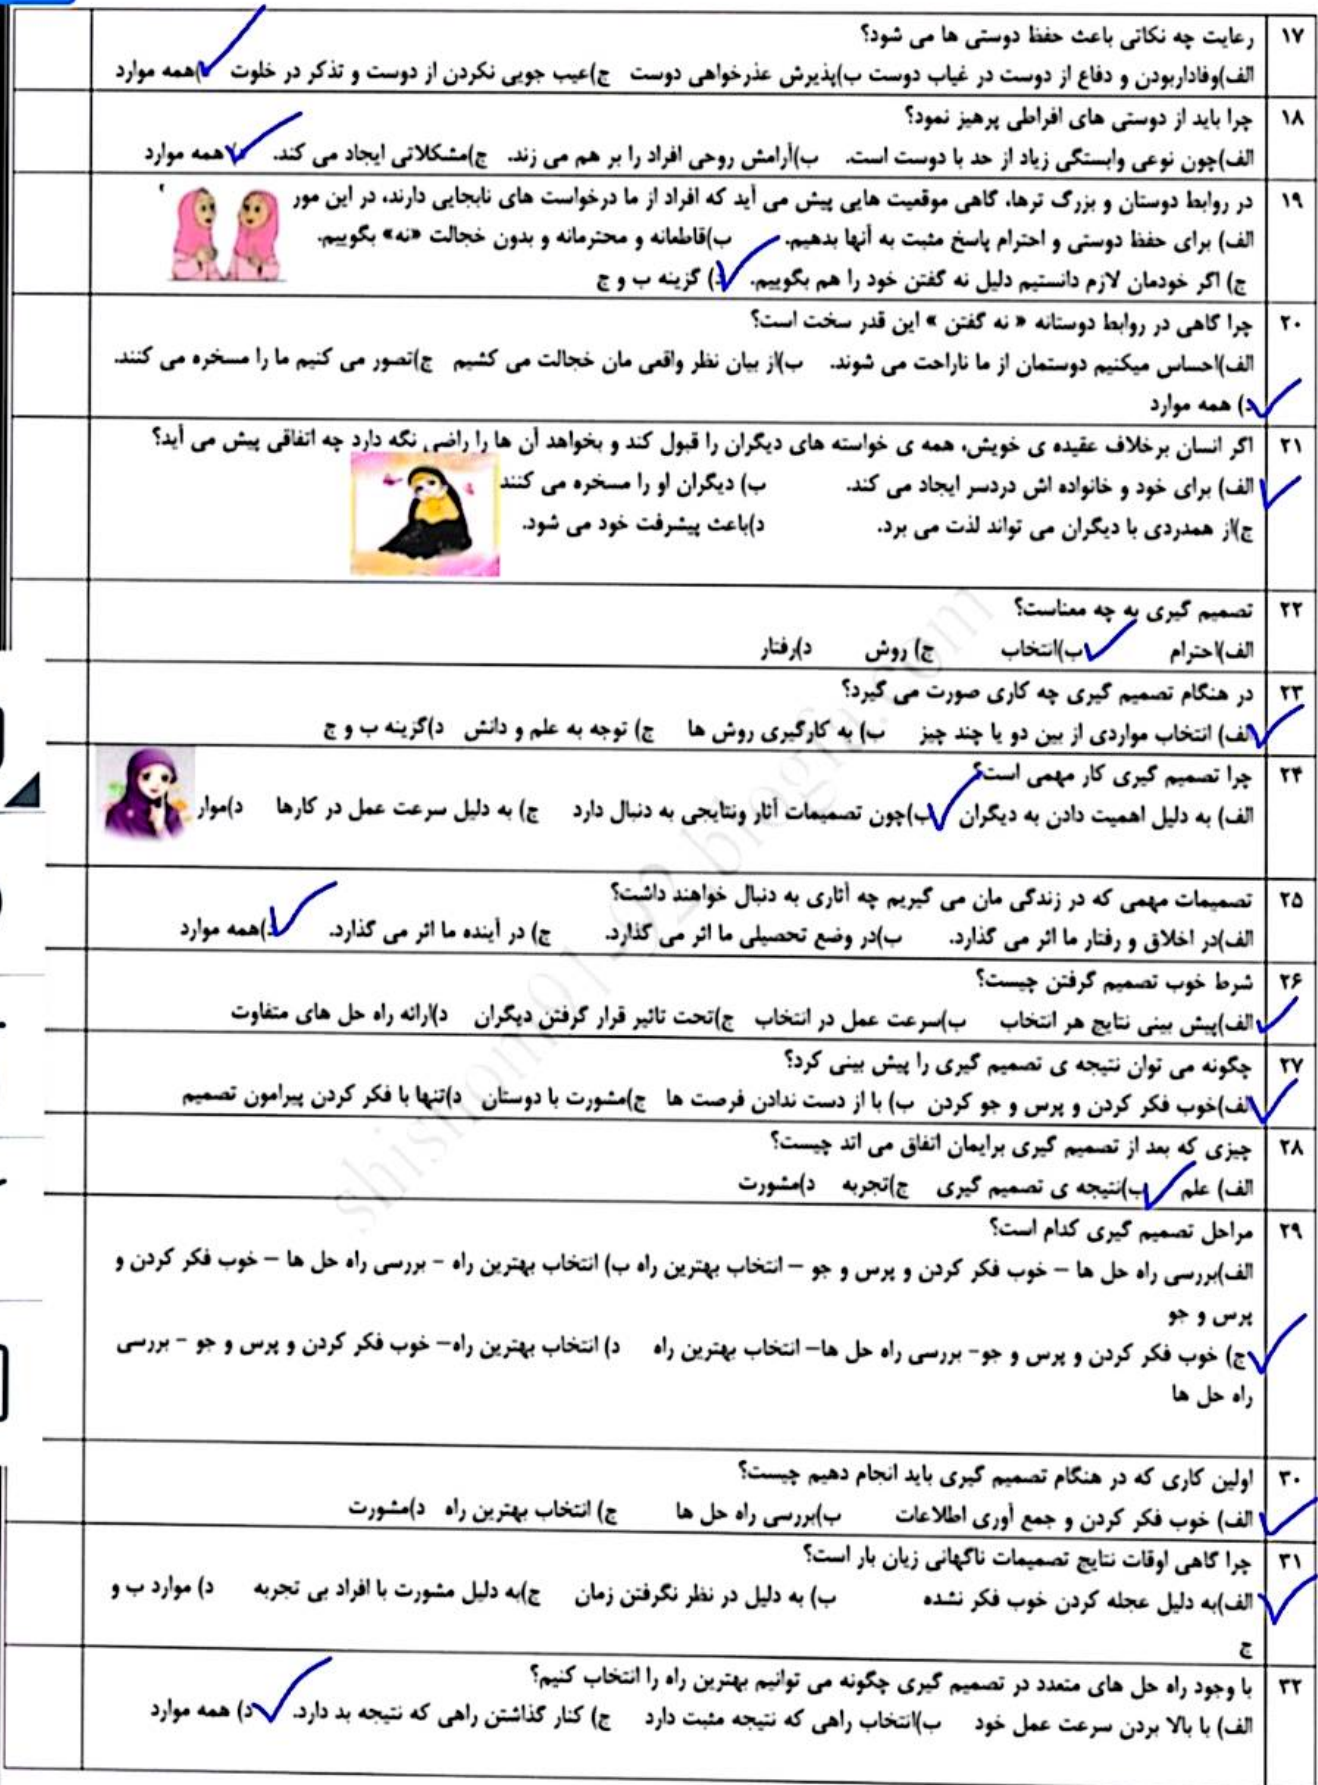 ۱۷ رعایت چه نکاتی باعث حفظ دوستی ها می شود؟
الف)وفاداربودن و دفاع از دوست در غیاب دوست ب)پذیرش عذرخواهی دوست ج)عیب جویی نکردن از دوست و تذکر در خلوت د)همه موارد
۱۸ چرا باید از دوستی های افراطی پرهیز نمود؟
الف)چون نوعی وابستگی زیاد از حد با دوست است. ب)آرامش روحی افراد را بر هم می زند. ج)مشکلاتی ایجاد می کند. د) همه موارد
۱۹ در روابط دوستان و بزرگ ترها، گاهی موقعیت هایی پیش می آید که افراد از ما درخواست های نابجایی دارند، در این مور
الف) برای حفظ دوستی و احترام پاسخ مثبت به آنها بدهیم. ب)قاطعانه و محترمانه و بدون خجالت «نه» بگوییم.
ج) اگر خودمان لازم دانستیم دلیل نه گفتن خود را هم بگوییم. د) گزینه ب و ج
۲۰ چرا گاهی در روابط دوستانه « نه گفتن » این قدر سخت است؟
الف)احساس میکنیم دوستمان از ما ناراحت می شوند. ب)از بیان نظر واقعی مان خجالت می کشیم ج)تصور می کنیم ما را مسخره می کنند.
د) همه موارد
۲۱ اگر انسان برخلاف عقیده ی خویش، همه ی خواسته های دیگران را قبول کند و بخواهد آن ها را راضی نگه دارد چه اتفاقی پیش می آید؟
الف) برای خود و خانواده اش دردسر ایجاد می کند. ب) دیگران او را مسخره می کنند
ج)از همدردی با دیگران می تواند لذت می برد. د)باعث پیشرفت خود می شود.
۲۲ تصمیم گیری به چه معناست؟
الف)احترام ب)انتخاب ج) روش د)رفتار
۲۳ در هنگام تصمیم گیری چه کاری صورت می گیرد؟
الف) انتخاب مواردی از بین دو یا چند چیز ب) به کارگیری روش ها ج) توجه به علم و دانش د)گزینه ب و ج
۲۴ چرا تصمیم گیری کار مهمی است؟
الف) به دلیل اهمیت دادن به دیگران ب)چون تصمیمات آثار ونتایجی به دنبال دارد ج) به دلیل سرعت عمل در کارها د)موار
۲۵ تصمیمات مهمی که در زندگی مان می گیریم چه آثاری به دنبال خواهند داشت؟
الف)در اخلاق و رفتار ما اثر می گذارد. ب)در وضع تحصیلی ما اثر می گذارد. ج) در آینده ما اثر می گذارد. د)همه موارد
۲۶ شرط خوب تصمیم گرفتن چیست؟
الف)پیش بینی نتایج هر انتخاب ب)سرعت عمل در انتخاب ج)تحت تاثیر قرار گرفتن دیگران د)ارائه راه حل های متفاوت
۲۷ چگونه می توان نتیجه ی تصمیم گیری را پیش بینی کرد؟
الف)خوب فکر کردن و پرس و جو کردن ب) با از دست ندادن فرصت ها ج)مشورت با دوستان د)تنها با فکر کردن پیرامون تصمیم
۲۸ چیزی که بعد از تصمیم گیری برایمان اتفاق می اتد چیست؟
الف) علم ب)نتیجه ی تصمیم گیری ج)تجربه د)مشورت
۲۹ مراحل تصمیم گیری کدام است؟
الف)بررسی راه حل ها – خوب فکر کردن و پرس و جو – انتخاب بهترین راه ب) انتخاب بهترین راه - بررسی راه حل ها – خوب فکر کردن و
پرس و جو
ج) خوب فکر کردن و پرس و جو- بررسی راه حل ها– انتخاب بهترین راه د) انتخاب بهترین راه– خوب فکر کردن و پرس و جو - بررسی
راه حل ها
۳۰ اولین کاری که در هنگام تصمیم گیری باید انجام دهیم چیست؟
الف) خوب فکر کردن و جمع آوری اطلاعات ب)بررسی راه حل ها ج) انتخاب بهترین راه د)مشورت
۳۱ چرا گاهی اوقات نتایج تصمیمات ناگهانی زیان بار است؟
الف)به دلیل عجله کردن خوب فکر نشده ب) به دلیل در نظر نگرفتن زمان ج)به دلیل مشورت با افراد بی تجربه د) موارد ب و
ج
۳۲ با وجود راه حل های متعدد در تصمیم گیری چگونه می توانیم بهترین راه را انتخاب کنیم؟
الف) با بالا بردن سرعت عمل خود ب)انتخاب راهی که نتیجه مثبت دارد ج) کنار گذاشتن راهی که نتیجه بد دارد. د) همه موارد
shishom91-92.blogfa.com